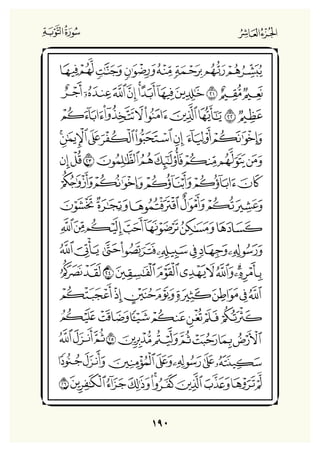 الجزء العاشر سورة التوبة
يبشرهم ربهم برحمة منه ورضوان وجنات لهم فيها
نعيم مقيم ٢١ خالدين فيها أبدا إن الله عنده أجر
عظيم ٢٢ يا أيها الذين آمنوا لا تتخذوا آباءكم
وإخوانكم أولياء إن استحبوا الكفر على الإيمان
ومن يتولهم منكم فأولئك هم الظالمون ٢٣ قل إن
كان آباؤكم وأبناؤكم وإخوانكم وأزواجكم
وعشيرتكم وأموال اقترفتموها وتجارة تخشون
كسادها ومساكن ترضونها أحب إليكم من الله
ورسوله وجهاد في سبيله فتربصوا حتى يأتي الله
بأمره والله لا يهدي القوم الفاسقين ٢٤ لقد نصركم
الله في مواطن كثيرة ويوم حنين إذ أعجبتكم
كثرتكم فلم تغن عنكم شيئا وضاقت عليكم
الأرض بما رحبت ثم وليتم مدبرين ٢٥ ثم أنزل الله
سكينته على رسوله وعلى المؤمنين وأنزل جنودا
لم تروها وعذب الذين كفروا وذلك جزاء الكافرين ٢٦
١٩٠